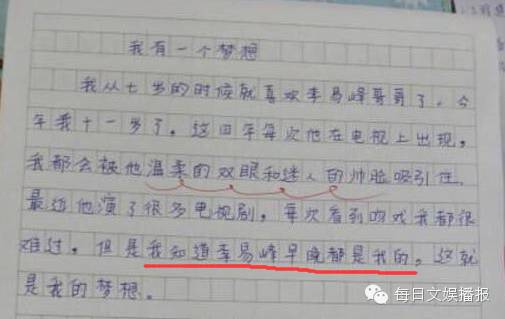 我有一个梦想
我从七岁的时候就喜欢李易峰哥哥了，今
年我十一岁了。这四年每次他在电视上出现，
我都会被他温柔的双眼和迷人的帅脸吸引住。
最近他演了很多电视剧，每次看到吻戏我都很
难过。但是我知道李易峰早晚都是我的。这就
是我的梦想。
每日文娱播报